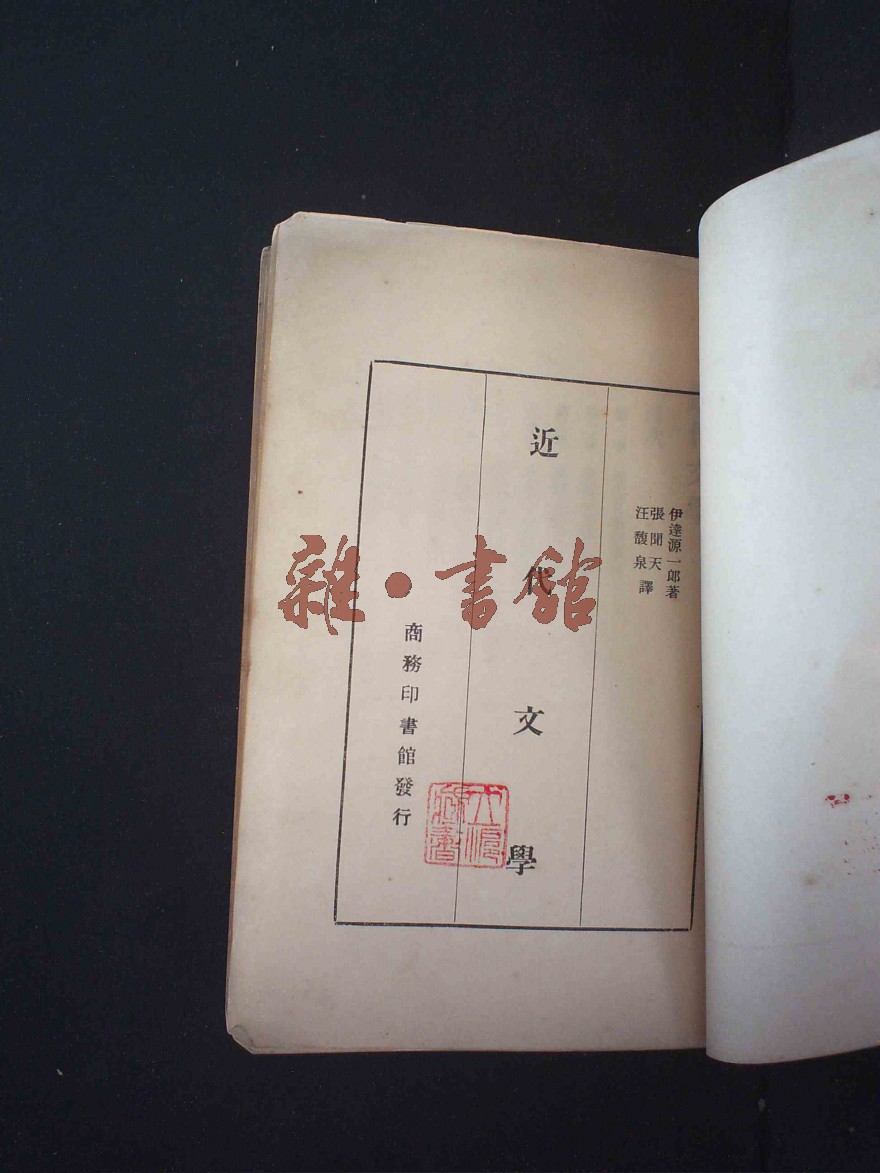 伊達源一郎著
張聞天
汪馥泉譯
近代文學
商務印書館發行
雜·書館